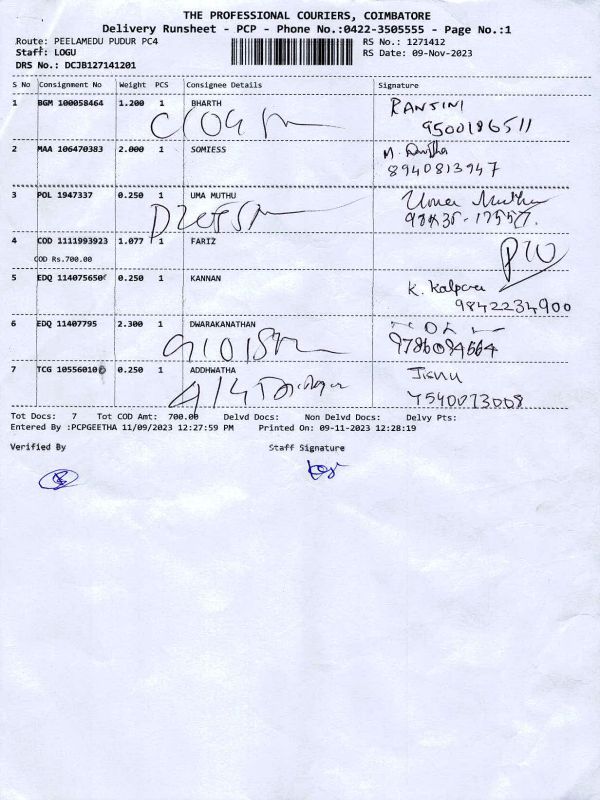 THE PROFESSIONAL COURIERS, COIMBATORE
Delivery Runsheet - PCP - Phone No.:0422-3505555 - Page No.:1
Route: PEELAMEDU PUDUR PC4 RS No.: 1271412
Staff: LOGU RS Date: 09-Nov-2023
DRS No.: DCJB127141201
S No Consignment No Weight PCS Consignee Details Signature
1 BGM 100058464 1.200 1 BHARTH RANJINI
9500186511
2 MAA 106470383 2.000 1 SOMIESS M.
8940813947
3 POL 1947337 0.250 1 UMA MUTHU Uma Muthu
4 COD 1111993923 1.077 1 FARIZ
COD Rs.700.00
5 EDQ 114075650 0.250 1 KANNAN K. Kalpana
9842234900
6 EDQ 11407795 2.300 1 DWARAKANATHAN
9786094564
7 TCG 10556010 0.250 1 ADDHWATHA Jishnu
Tot Docs: 7 Tot COD Amt: 700.00 Delvd Docs: Non Delvd Docs: Delvy Pts:
Entered By :PCPGEETHA 11/09/2023 12:27:59 PM Printed On: 09-11-2023 12:28:19
Verified By Staff Signature